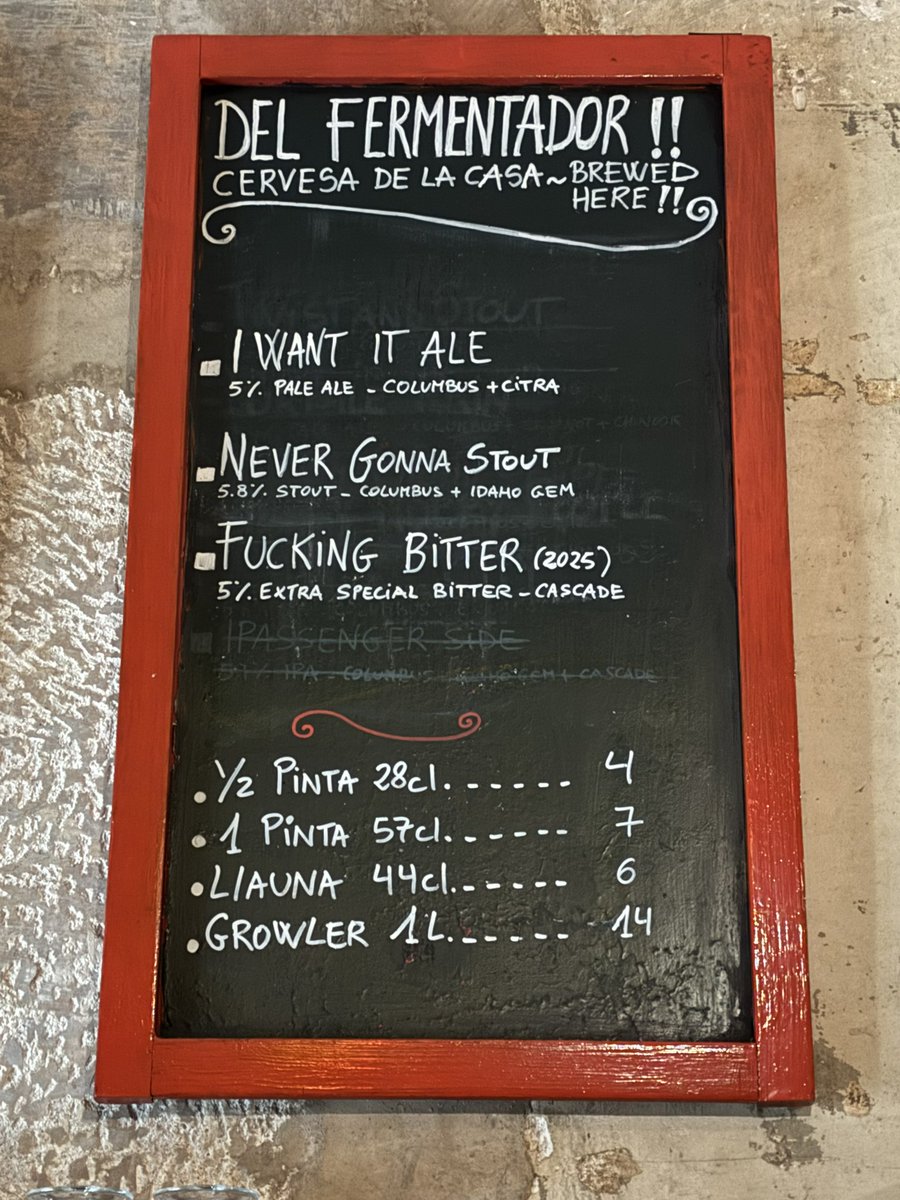 DEL FERMENTADOR !!
CERVESA DE LA CASA ~ BREWED
HERE !!
I WANT IT ALE
5% PALE ALE - COLUMBUS + CITRA
NEVER GONNA STOUT
5.8% STOUT - COLUMBUS + IDAHO GEM
FUCKING BITTER (2025)
5% EXTRA SPECIAL BITTER - CASCADE
IPASSENGER SIDE
5.7% IPA - COLUMBUS IDAHO GEM + CASCADE
½ PINTA 28cl. ------ 4
1 PINTA 57cl. ------ 7
LlAUNA 44cl. ------ 6
GROWLER 1L. ----- 14